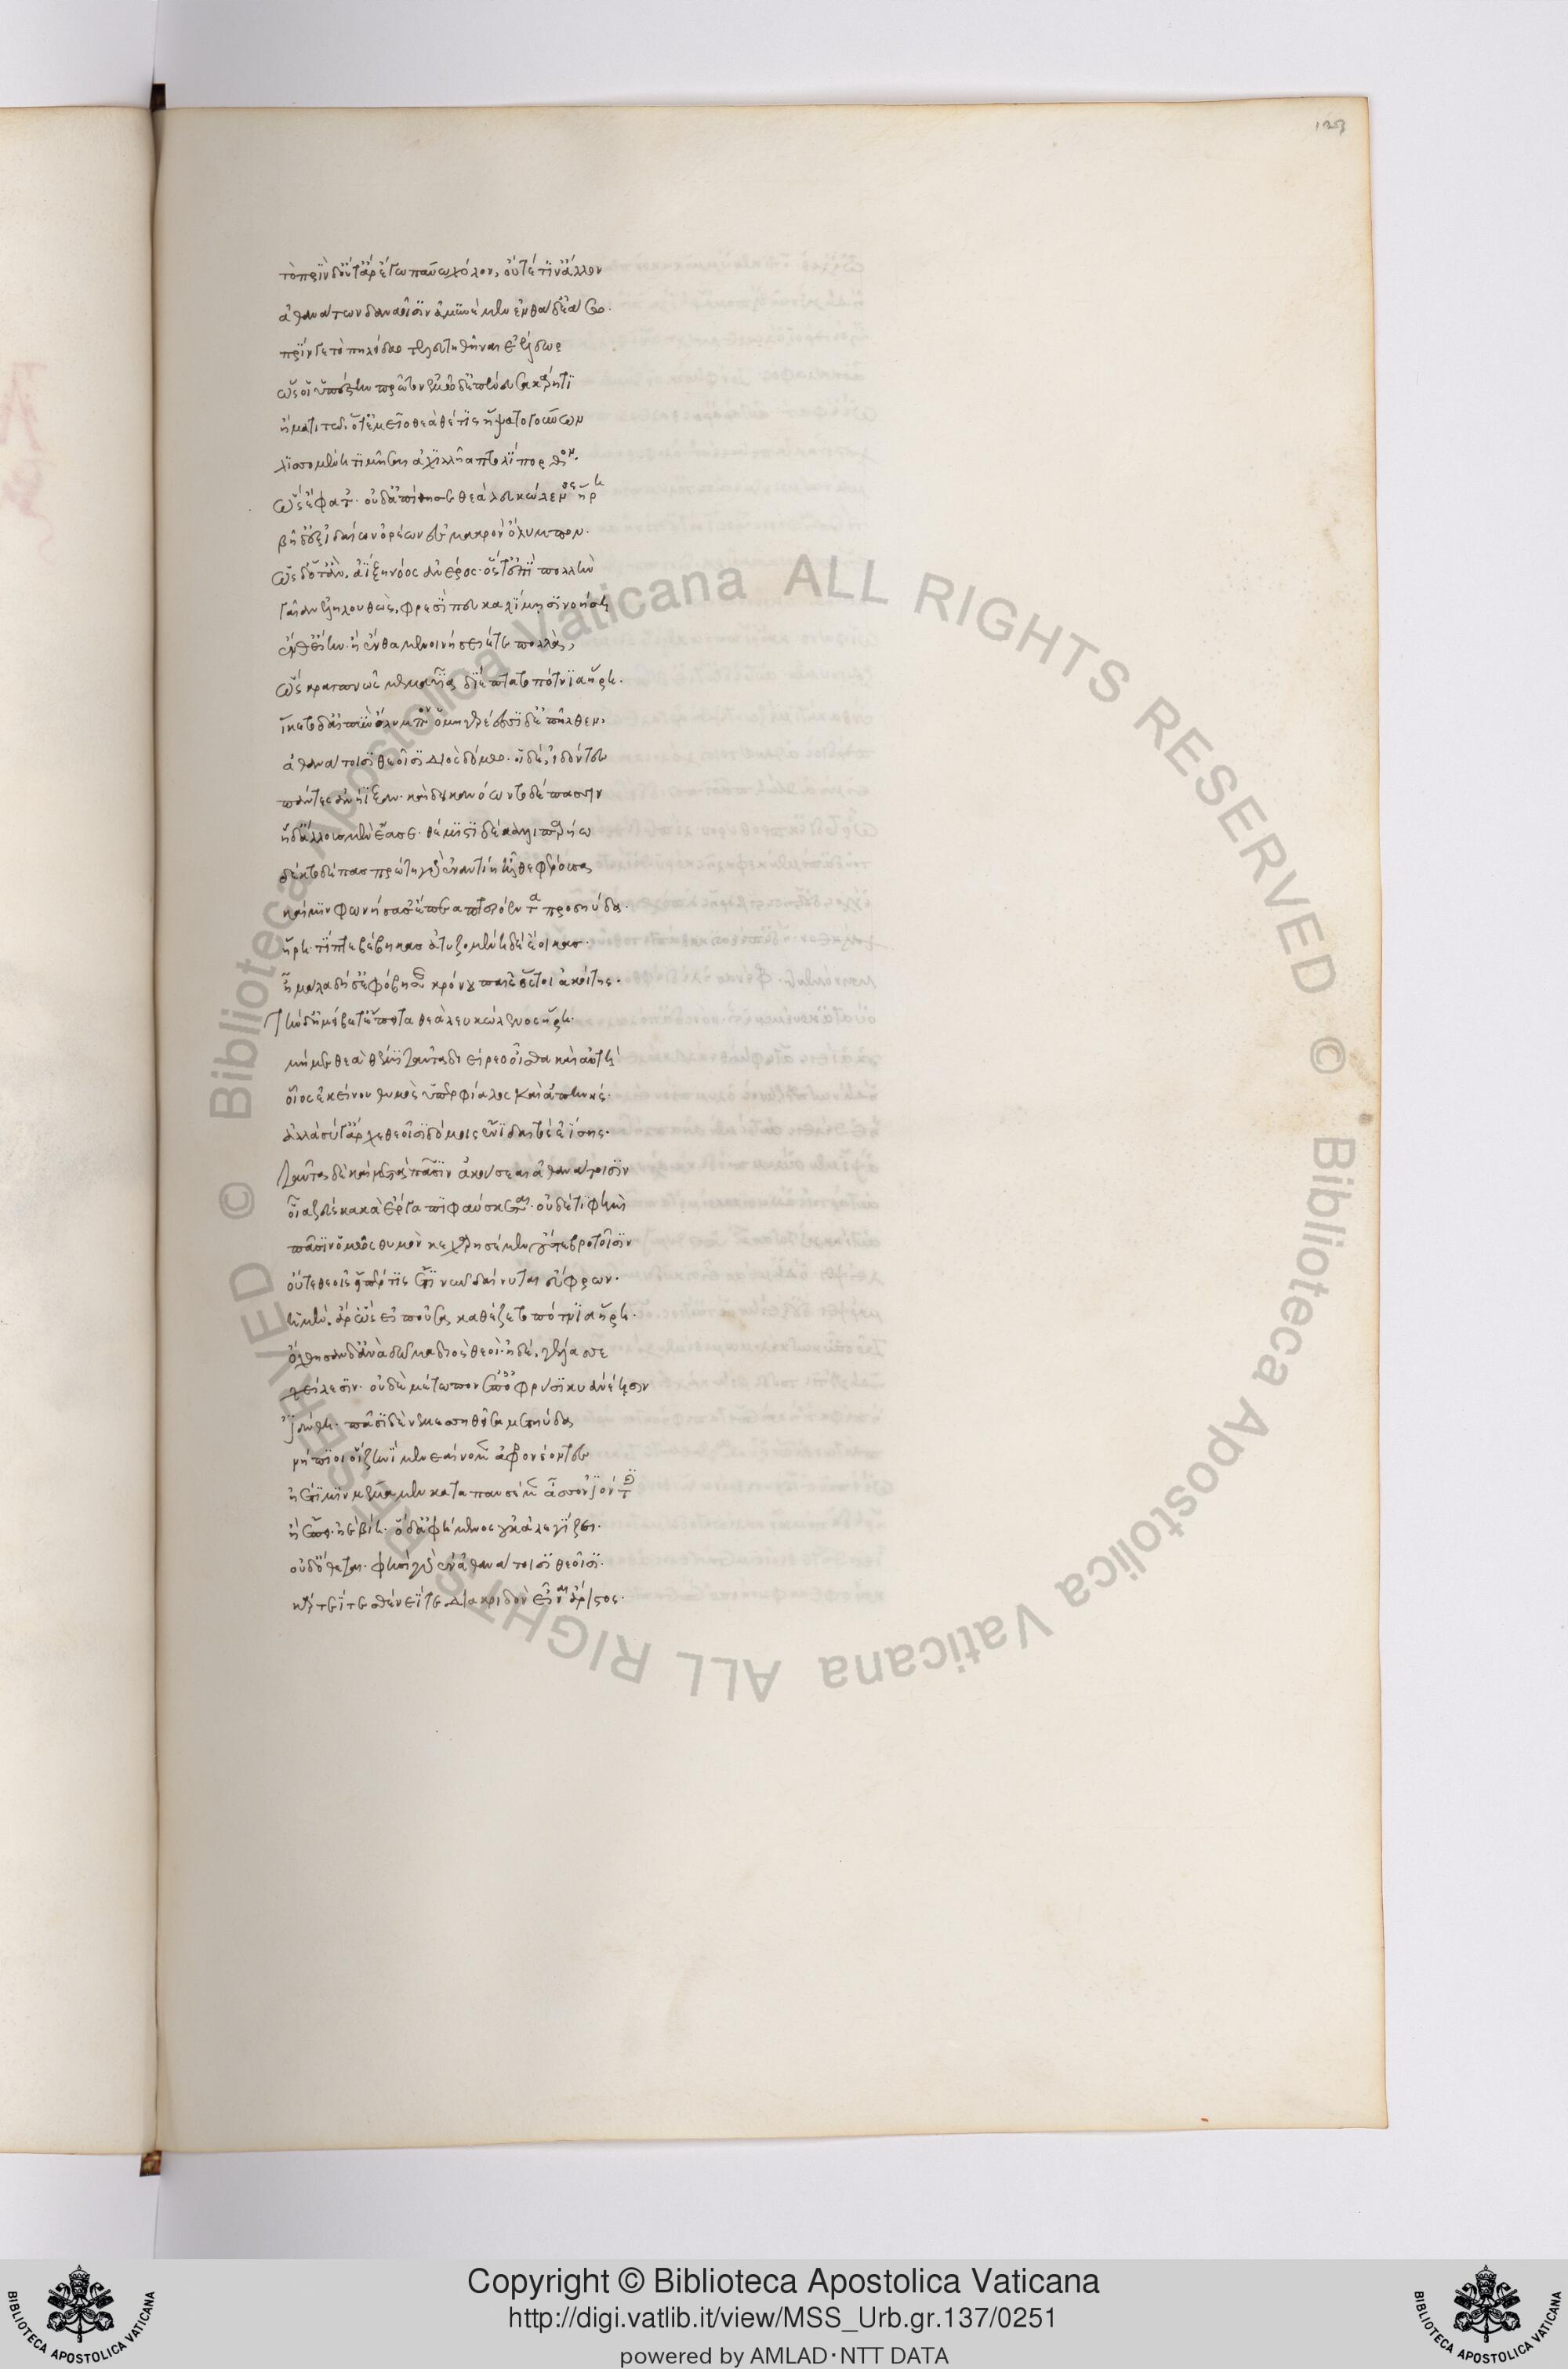 123
τὸ πρὶν δ' οὔτ' ἂρ ἐγὼ παύω χόλον, οὔτέ τιν' ἄλλον
ἀθανάτων δαναοῖσιν ἀμυνέμεν ἐνθάδ' ἐάσω·
πρίν γε τὸ πηλείδαο τελευτηθῆναι ἐέλδωρ
ὥς οἱ ὑπέστην πρῶτον ἐμῷ δ' ἐπένευσα κάρητι
ἤματι τῶ ὅτ' ἐμεῖο θεὰ θέτις ἥψατο γούνων
λισσομένη τιμῆσαι ἀχιλλῆα πτολίπορθον·
ὣς ἔφατ'· οὐδ' ἀπίθησε θεὰ λευκώλενος ἥρη
βῆ δ' ἐξ ἰδαίων ὀρέων ἐς μακρὸν ὄλυμπον·
ὡς δ' ὅτ' ἂν, ἀΐξη νόος ἀνέρος· ὅς τ' ἐπὶ πολλὴν
γαῖαν ἐληλουθὼς, φρεσὶ πευκαλίμησι νοήση
ἔνθ' εἴην· ἢ ἔνθα μενοινήσειέ τε πολλὰ,
ὣς κραιπνῶς μεμαυῖα διέπτατο πότνια ἥρη·
ἵκετο δ' αἰπὺν ὄλυμπον ὁμηγερέεσσι δ' ἐπῆλθεν,
ἀθανάτοισι θεοῖσι διὸς δόμω· οἱ δὲ, ἰδόντες
πάντες ἀνήϊξαν· καὶ δεικανόωντο δέπασσιν
ἡ δ' ἄλλους μὲν ἔασε· θέμιστι δὲ καλλιπαρήω
δέκτο δέπας πρώτη γὰρ ἐναντίη ἦλθε θέουσα
καί μιν φωνήσασ' ἔπεα πτερόεντα προσηύδα·
ἥρη· τίπτε βέβηκας ἀτυζομένη δὲ ἔοικας·
ἦ μάλα δή σ' ἐφόβησε κρόνου παῖς ὅς τοι ἀκοίτης·
Τὴν δ' ἠμείβετ' ἔπειτα θεὰ λευκώλενος ἥρη·
μή με θεὰ θέμι ταῦτα διείρεο οἶσθα καὶ αὐτή
οἷος ἐκείνου θυμὸς ὑπερφίαλος καὶ ἀπηνής·
ἀλλὰ σύ γ' ἄρχε θεοῖσι δόμοις ἔνι δαιτὸς ἐΐσης·
Ταῦτα δὲ καὶ μετὰ πᾶσιν ἀκούσεαι ἀθανάτοισιν
οἷα ζεὺς κακὰ ἔργα πιφαύσκεται· οὐδέ τι φημὶ
πᾶσιν ὁμῶς θυμὸν κεχαρησέμεν οὔτε βροτοῖσιν
οὔτε θεοῖς εἴπέρ τις ἔτι νῦν δαίνυται εὔφρων·
ἡ μὲν, ἂρ ὣς εἰποῦσα καθέζετο πότνια ἥρη·
ὄχθησαν δ' ἀνὰ δῶμα διὸς θεοὶ· ἡ δὲ, γέλασσε
χείλεσιν· οὐδὲ μέτωπον ἐπ' ὀφρύσι κυανέησιν
ἰάνθη· πᾶσι δὲ νεμεσσηθεῖσα μετηύδα
νήπιοι οἳ ζηνὶ μενεαίνομεν ἀφρονέοντες
ἢ ἔτι μιν μέμαμεν καταπαυσέμεν ἆσσον ἰόντες
ἢ ἔπει ἠὲ βίη· ὁ δ' ἀφήμενος οὐκ ἀλεγίζει·
οὐδ' ὄθεται· φησὶ γὰρ ἐν ἀθανάτοισι θεοῖσι·
κάρτεΐ τε σθένεΐ τε διακριδὸν εἶναι ἄριστος·
Copyright © Biblioteca Apostolica Vaticana
http://digi.vatlib.it/view/MSS_Urb.gr.137/0251
powered by AMLAD·NTT DATA